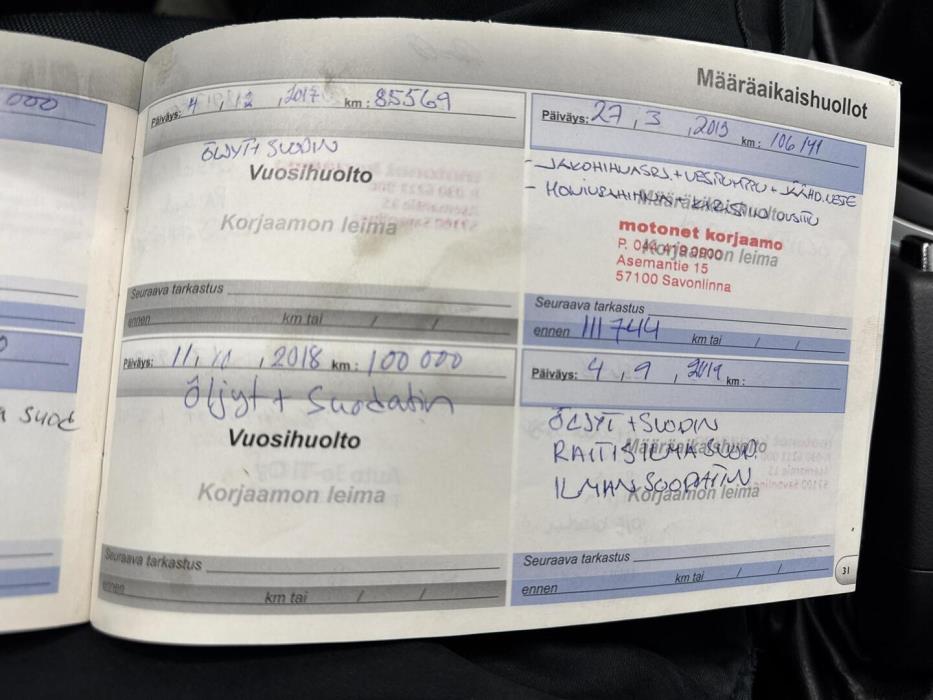 000
Määräaikaishuollot
Päiväys: 4, 12, 2017 km: 85569
ÖLJYT+ SUODIN
Vuosihuolto
Korjaamon leima
Seuraava tarkastus
ennen km tai / /
Päiväys: 11, 2018 km: 100 000
Öljyt + Suodatin
Vuosihuolto
Korjaamon leima
Seuraava tarkastus
ennen km tai / /
Päiväys: 27, 3, 2019 km: 106 141
- JAKOHIHNASRJ + VESIPUMPPU + JÄÄHD.NESTE
- MONIURAHIHNA + KIRISTIN UUSITTU
Määräaikaishuolto
Korjaamon leima
motonet korjaamo
P. 044 419 0900
Asemantie 15
57100 Savonlinna
Seuraava tarkastus
ennen 111744 km tai / /
Päiväys: 4, 9, 2019 km:
ÖLJYT + SUODIN
RAITISILMASUOD.
ILMANSUODATIN
Määräaikaishuolto
Korjaamon leima
Seuraava tarkastus
ennen km tai / /
31